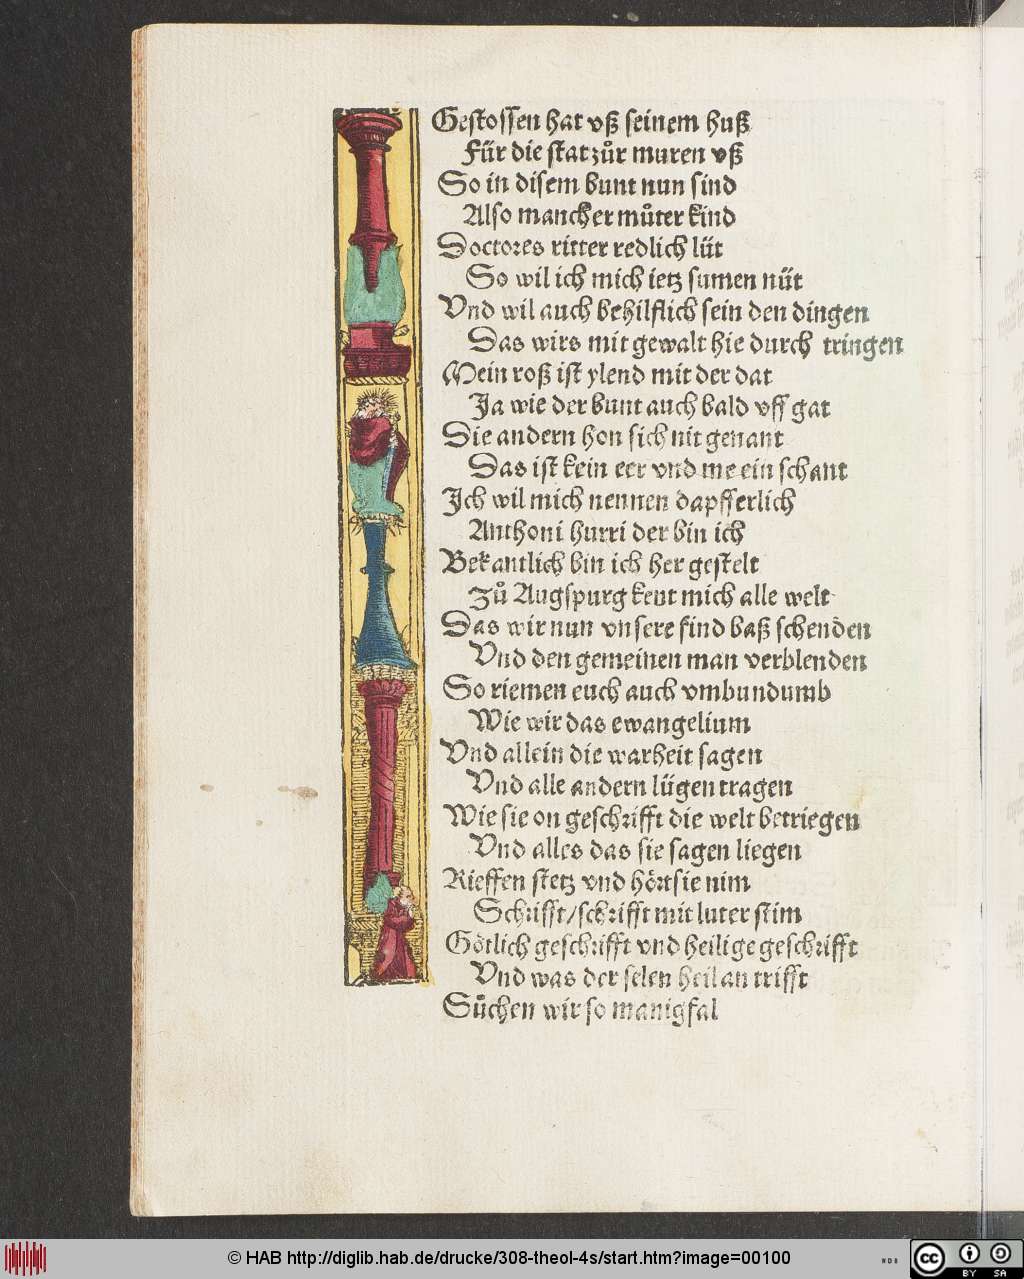 Gestossen hat vß seinem huß
Für die stat zůr muren vß
So in disem bunt nun sind
Also mancher můter kind
Doctores ritter redlich lüt
So wil ich mich ietz sumen nüt
Vnd wil auch behilflich sein den dingen
Das wirs mit gewalt hie durch tringen
Mein roß ist ylend mit der dat
Ja wie der bunt auch bald vff gat
Die andern hon sich nit genant
Das ist kein eer vnd me ein schant
Ich wil mich nennen dapfferlich
Anthoni hurri der bin ich
Bekantlich bin ich her gestelt
Zů Augspurg kent mich alle welt
Das wir nun vnsere find baß schenden
Vnd den gemeinen man verblenden
So riemen euch auch vmbundumb
Wie wir das ewangelium
Vnd allein die warheit sagen
Vnd alle andern lügen tragen
Wie sie on geschrifft die welt betriegen
Vnd alles das sie sagen liegen
Rieffen stetz vnd hört sie nim
Schrifft/schrifft mit luter stim
Götlich geschrifft vnd heilige geschrifft
Vnd was der selen heil an trifft
Sůchen wir so manigfal
© HAB http://diglib.hab.de/drucke/308-theol-4s/start.htm?image=00100
WDB
cc
BY SA